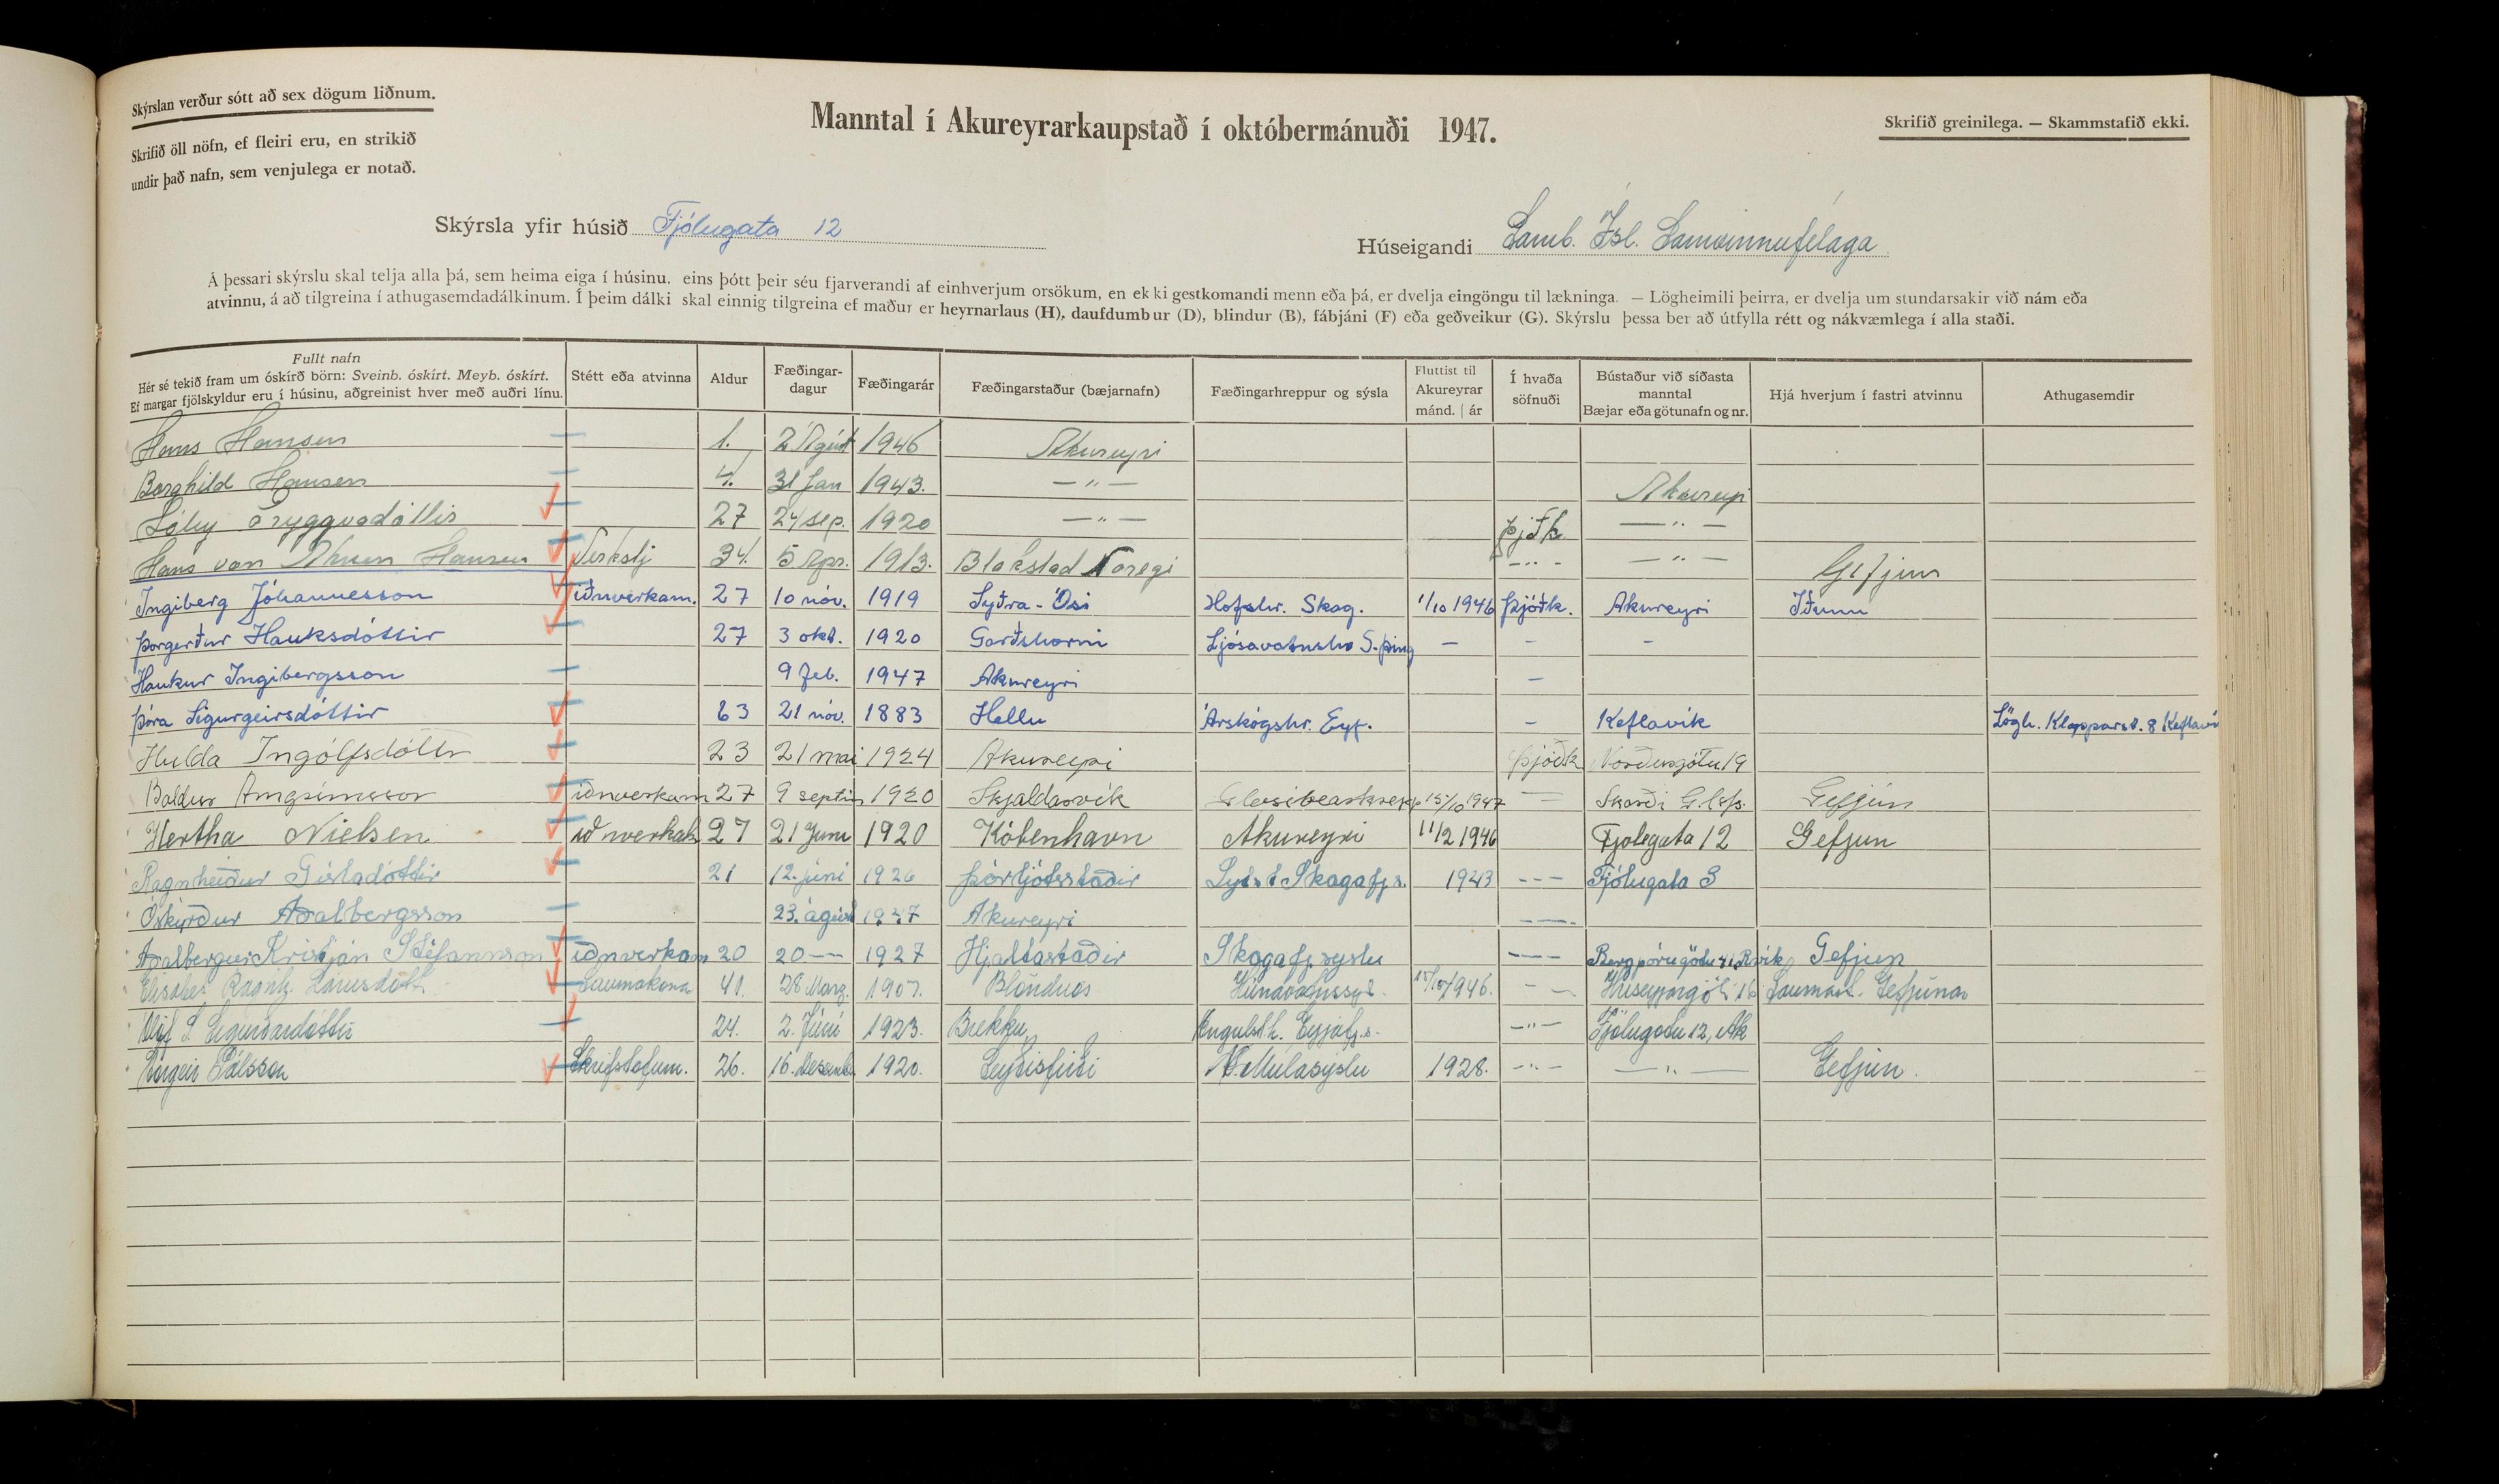 Skýrslan verður sótt að sex dögum liðnum.
Skrifið öll nöfn, ef fleiri eru, en strikið
undir það nafn, sem venjulega er notað.
Manntal í Akureyrarkaupstað í októbermánuði 1947.
Skrifið greinilega. — Skammstafið ekki.
Skýrsla yfir húsið Fjólugata 12
Húseigandi Samb. Ísl. Samvinnufélaga
Á þessari skýrslu skal telja alla þá, sem heima eiga í húsinu, eins þótt þeir séu fjarverandi af einhverjum orsökum, en ekki gestkomandi menn eða þá, er dvelja eingöngu til lækninga. — Lögheimili þeirra, er dvelja um stundarsakir við nám eða
atvinnu, á að tilgreina í athugasemdadálkinum. Í þeim dálki skal einnig tilgreina ef maður er heyrnarlaus (H), daufdumbur (D), blindur (B), fábjáni (F) eða geðveikur (G). Skýrslu þessa ber að útfylla rétt og nákvæmlega í alla staði.
Fullt nafn
Hér sé tekið fram um óskírð börn: Sveinb. óskírt. Meyb. óskírt.
Ef margar fjölskyldur eru í húsinu, aðgreinist hver með auðri línu.
Stétt eða atvinna
Aldur
Fæðingar-
dagur
Fæðingarár
Fæðingarstaður (bæjarnafn)
Fæðingarhreppur og sýsla
Fluttist til
Akureyrar
mánd. | ár
Í hvaða
söfnuði
Bústaður við síðasta
manntal
Bæjar eða götunafn og nr.
Hjá hverjum í fastri atvinnu
Athugasemdir
Hans Hansen 1. 2 Ágúst 1946 Akureyri
Borghild Hansen 4. 31 Jan 1943. — " — Akureyri
Sóley Tryggvadóttir 27 24 sep. 1920 — " — Þjóðk — " —
Hans van Hansen Verkstj 34. 5 Apr. 1913. Blakstad Noregi — " — — " — Gefjun
Ingiberg Jóhannesson iðnverkam. 27 10 nóv. 1919 Syðra-Ósi Hofshr. Skag. 1/10 1946 Þjóðk. Akureyri Iðunn
Þorgerður Hauksdóttir 27 3 okt. 1920 Garðshorni Ljósavatnshr S-þing — — —
Haukur Ingibergsson 9 feb. 1947 Akureyri —
Þóra Sigurgeirsdóttir 63 21 nóv. 1883 Hellu Árskógshr. Eyf. — Keflavík Lögh. Klapparst. 8 Keflaví
Hulda Ingólfsdóttir 23 21 mai 1924 Akureyri Þjóðk Norðurgötu 19
Baldur Arngrímsson iðnverkam 27 9 septem 1920 Skjaldarvík 15/10 1947 — Skarði Gefjun
Hertha Nielsen iðnverkak 27 21 Juni 1920 Köbenhavn Akureyri 11/2 1946 Fjolugata 12 Gefjun
Ragnheiður Gísladóttir 21 12. júní 1926 Þorljótsstaðir Lýt. Skagafj.s. 1943 --- Fjólugata 3
Óskírður Aðalbergsson 23. ágúst 1947 Akureyri ---
Aðalbergur Kristján Stefánsson iðnverkam 20 20 — 1927 Hjaltastaðir Skagafj. syslu --- Bergþórugötu 41, Rvík Gefjun
Elísabet Ragnh. Saumakona 41. 28. Marz. 1907. Blönduós Húnavatnssýs. 15/10 1946. — Gefjunar
Ólöf S. Sigurðardóttir 24. 2. Júní 1923. Brekku Öngulsth. Eyjafj.s. — " — Fjólugötu 12, Ak
Þorgeir Pálsson Skrifstofum. 26. 16. Desemb. 1920. Seyðisfirði N. Múlasýslu 1928. — " — — " — Gefjun.